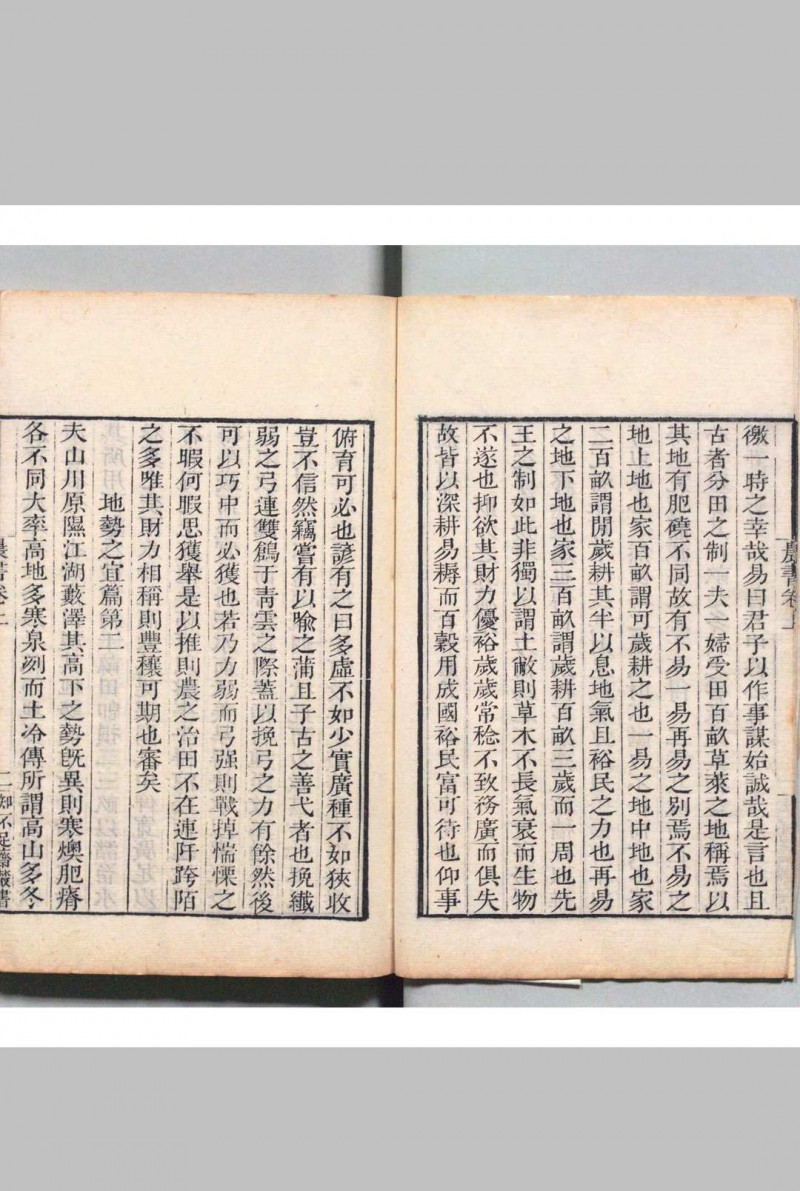 徼一時之幸哉易曰君子以作事謀始誠哉是言也且
古者分田之制一夫一婦受田百畝草萊之地稱焉以
其地有肥磽不同故有不易一易再易之別焉不易之
地上地也家百畝謂可歲耕之也一易之地中地也家
二百畝謂閒歲耕其半以息地氣且裕民之力也再易
之地下地也家三百畝謂歲耕百畝三歲而一周也先
王之制如此非獨以謂土敝則草木不長氣衰而生物
不遂也抑欲其財力優裕歲歲常稔不致務廣而俱失
故皆以深耕易耨而百穀用成國裕民富可待也仰事
俯育可必也諺有之曰多虛不如少實廣種不如狹收
豈不信然竊嘗有以喻之蒲且子古之善弋者也挽纖
弱之弓連雙鶬于青雲之際蓋以挽弓之力有餘然後
可以巧中而必獲也若乃力弱而弓强則戰掉惴慄之
不暇何暇思獲舉是以推則農之治田不在連阡跨陌
之多唯其財力相稱則豐穰可期也審矣
地勢之宜篇第二
夫山川原隰江湖藪澤其高下之勢旣異則寒燠肥瘠
各不同大率高地多寒泉冽而土冷傳所謂高山多冬
農書卷上
二知不足齋叢書